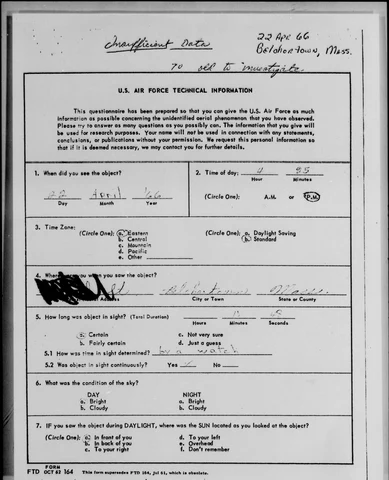 Insufficient Data
22 Apr 66
Belchertown, Mass.
To old to investigate
U.S. AIR FORCE TECHNICAL INFORMATION
This questionnaire has been prepared so that you can give the U.S. Air Force as much
information as possible concerning the unidentified aerial phenomenon that you have observed.
Please try to answer as many questions as you possibly can. The information that you give will
be used for research purposes. Your name will not be used in connection with any statements,
conclusions, or publications without your permission. We request this personal information so
that if it is deemed necessary, we may contact you for further details.
1. When did you see the object?
22 April '66
Day Month Year
2. Time of day:
Hour Minutes
(Circle One): A.M. or P.M.
3. Time Zone:
(Circle One): a. Eastern
b. Central
c. Mountain
d. Pacific
e. Other
(Circle One): a. Daylight Saving
b. Standard
4. Where were you when you saw the object?
Mass.
Address City or Town State or County
5. How long was object in sight? (Total Duration)
Hours Minutes Seconds
a. Certain
b. Fairly certain
c. Not very sure
d. Just a guess
5.1 How was time in sight determined? by a watch
5.2 Was object in sight continuously? Yes No
6. What was the condition of the sky?
DAY
a. Bright
b. Cloudy
NIGHT
a. Bright
b. Cloudy
7. IF you saw the object during DAYLIGHT, where was the SUN located as you looked at the object?
(Circle One): a. In front of you
b. In back of you
c. To your right
d. To your left
e. Overhead
f. Don't remember
FORM
FTD OCT 62 164 This form supersedes FTD 164, Jul 61, which is obsolete.